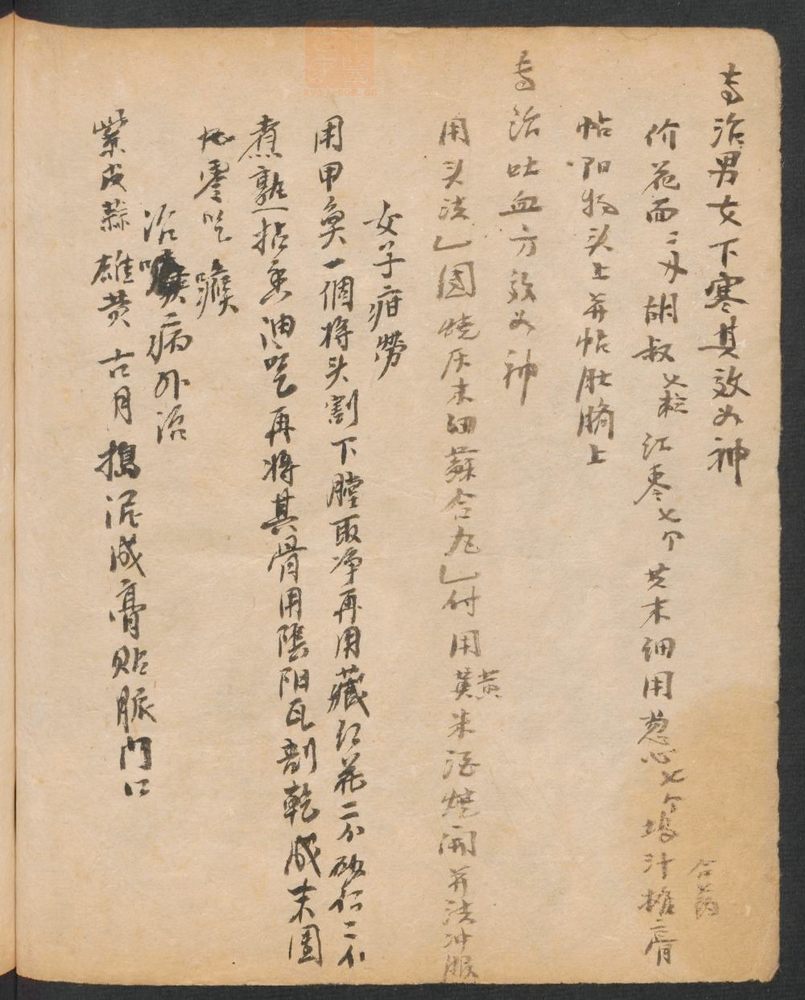 专治男女下寒其效如神
价花面二分胡叔七粒红枣七个共末细用葱心七个塢汁搥膏
合药
帖阳物头上并帖肚脐上
专治吐血方效如神
用头法乚團烧灰末细蘇合丸乚付用黄米酒烧闹并法冲服
女子疳劳
用甲魚一個将头割下膛取净再用藏红花二分砂仁二分
煮熟一拈香油吃再将其骨用陰阳瓦剖乾成末圊
地零吃
治病外治
紫皮蒜雄黄古月搗泥成膏贴脈门口